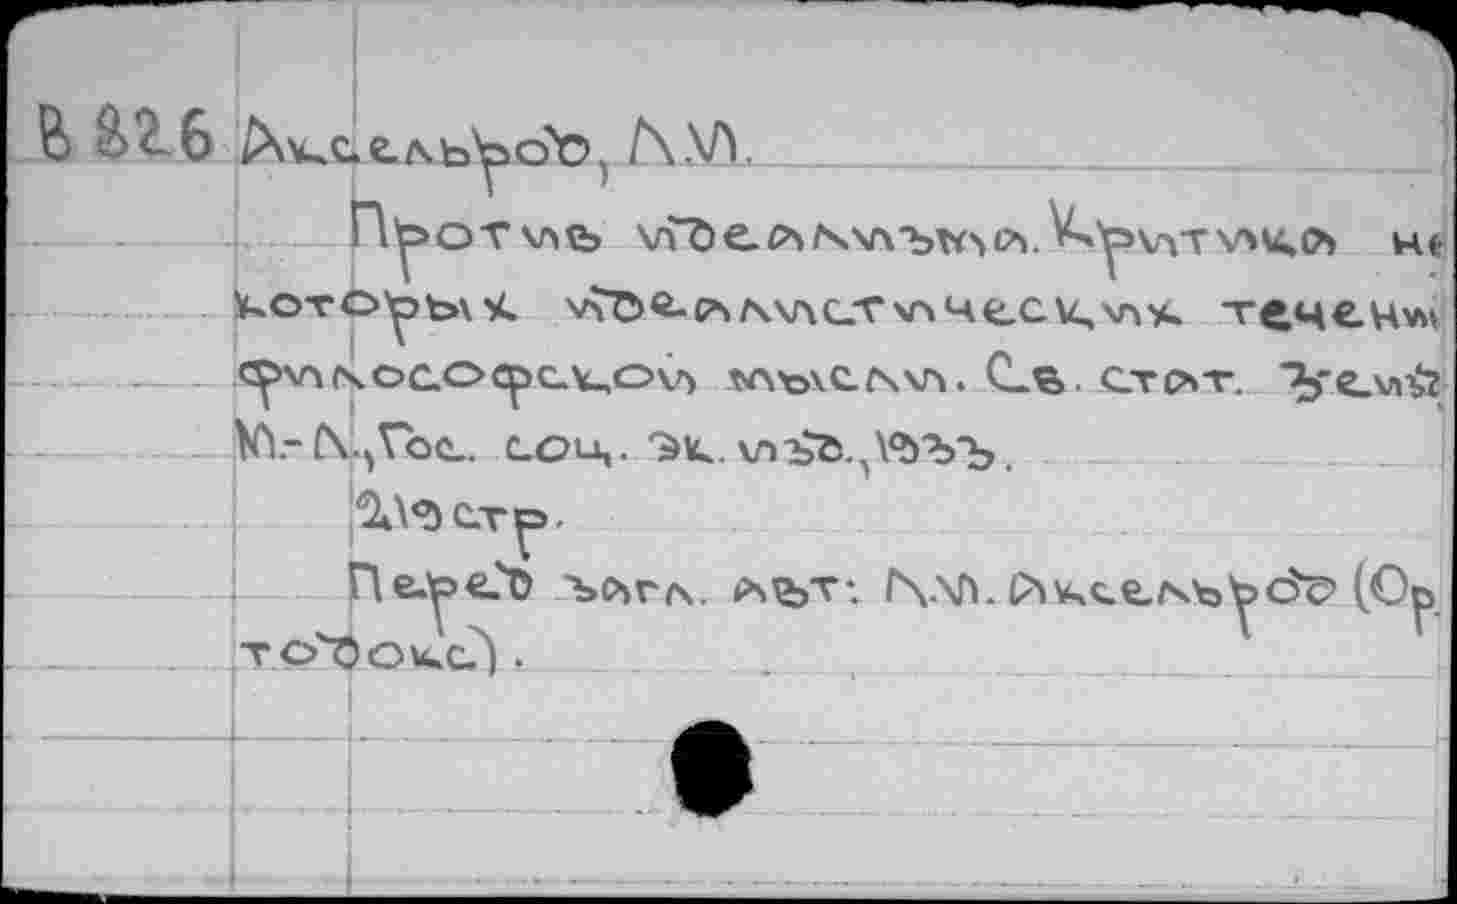 В 826 Аксельрод, Л.И.
Против идеализма. Критика не
которых идеалистических течени
философской мысли. Св. стат. Изд. 2е
М.-Л., Гос. соц. эк. изд., 1933.
219 стр.
Перед загл. авт: Л.И. Аксельрод (Ор
тодокс).